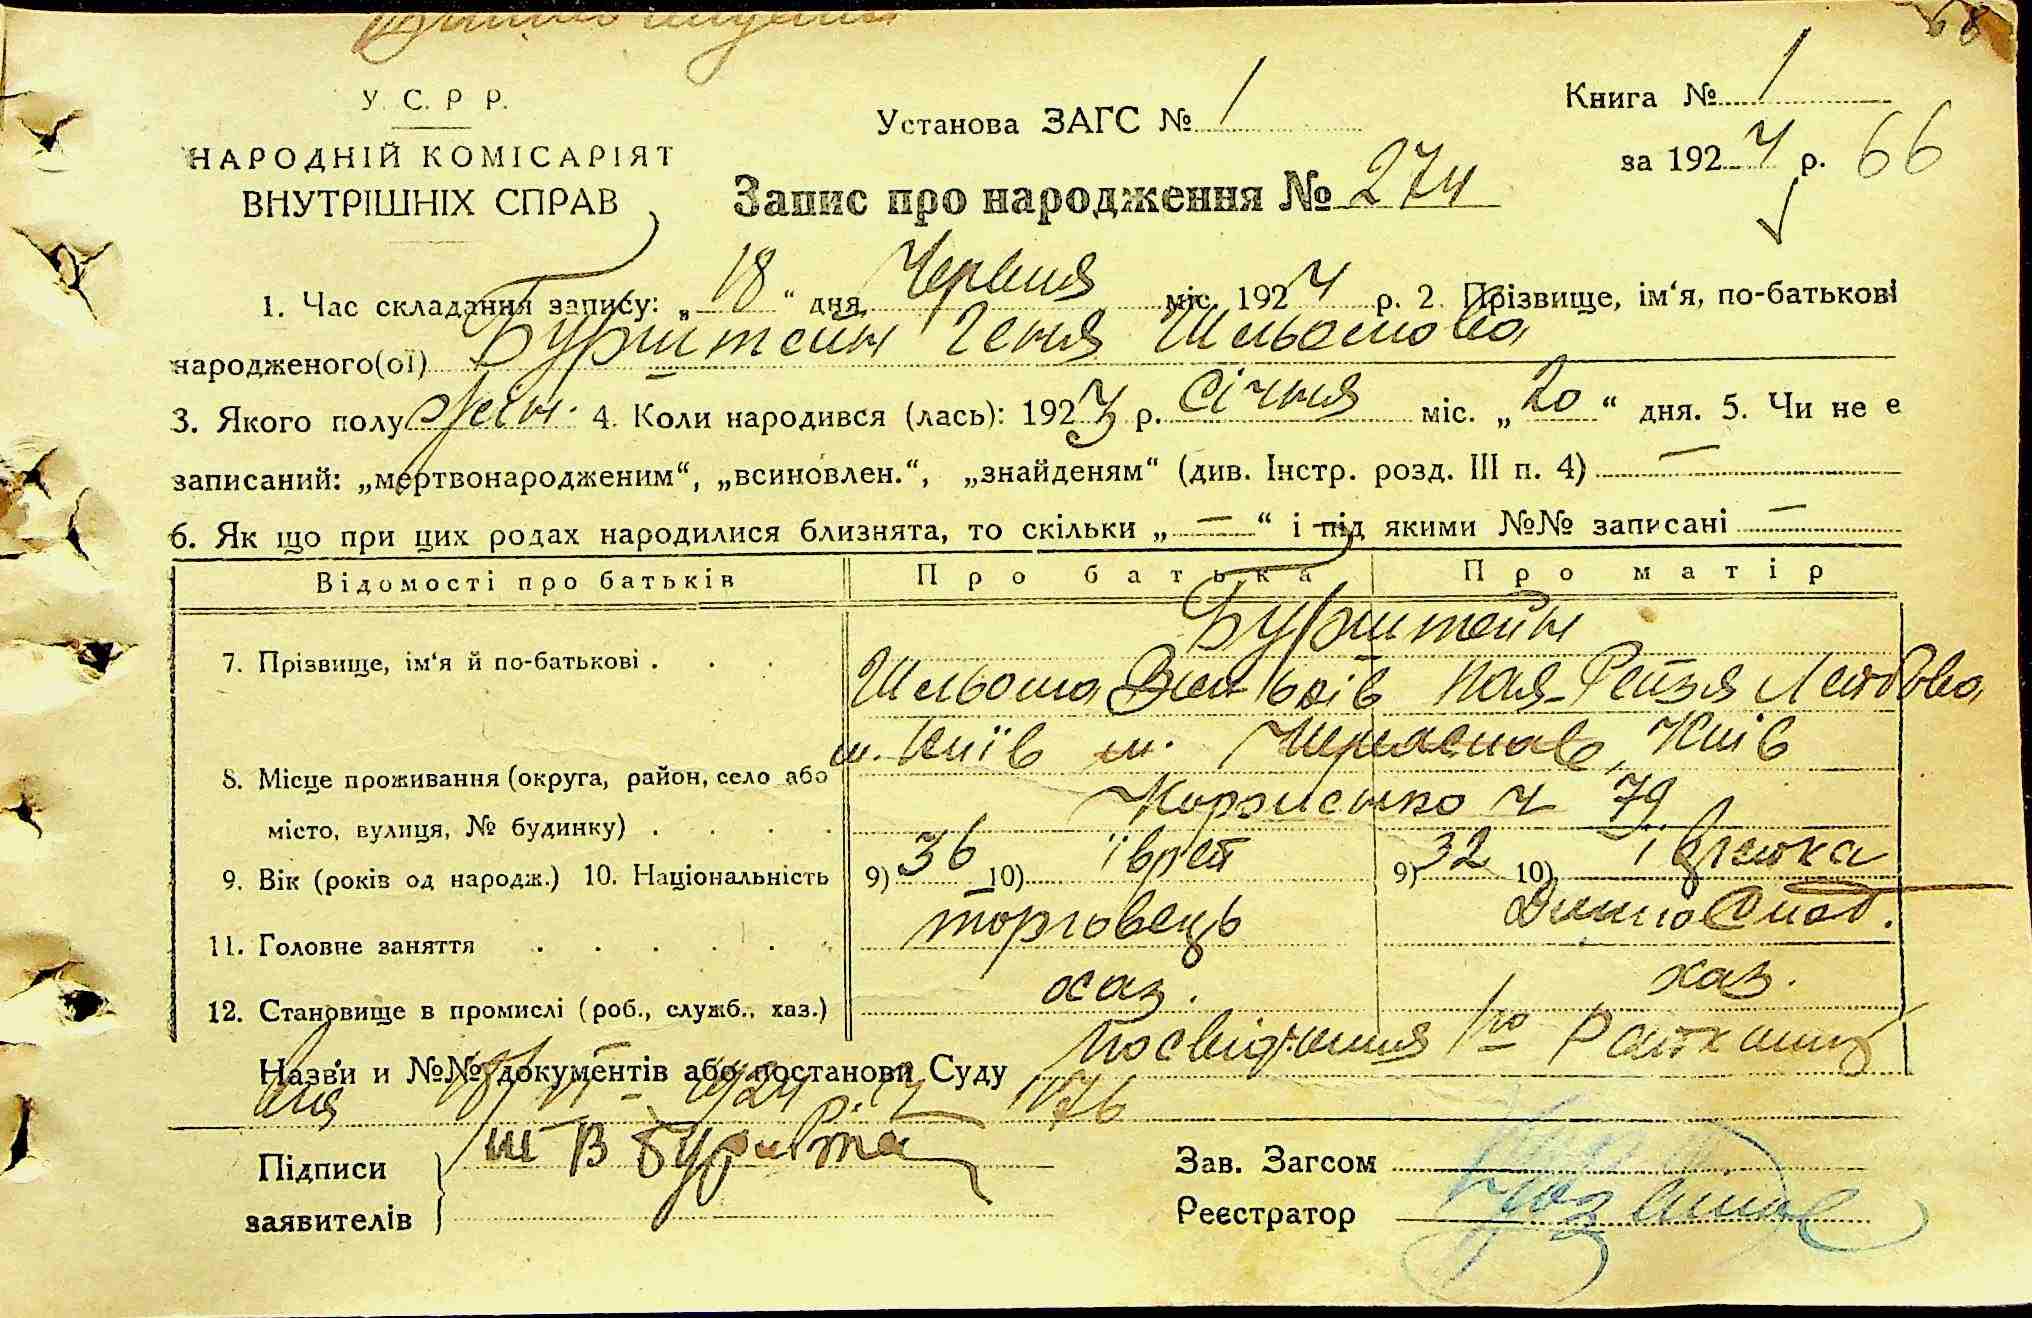 68
У. С. Р Р.
НАРОДНІЙ КОМІСАРІЯТ
ВНУТРІШНІХ СПРАВ
Установа ЗАГС № 1
Книга № 1
за 1924 р. 66
Запис про народження № 274
1. Час складання запису: „18“ дня Червня міс. 1924 р. 2. Прізвище, ім‘я, по-батькові
народженого(ої) Бурштейн Геня Шльомова
3. Якого полу жін. 4. Коли народився (лась): 1923 р. Січня міс. „20“ дня. 5. Чи не є
записаний: „мертвонародженим“, „всиновлен.“, „знайденям“ (див. Інстр. розд. III п. 4) —
6. Як що при цих родах народилися близнята, то скільки „—“ і під якими №№ записані —
Відомості про батьків Про батька Про матір
Бурштейн
7. Прізвище, ім‘я й по-батькові . . . Шльома Рейзя
м. Київ м. Київ
8. Місце проживання (округа, район, село або
місто, вулиця, № будинку) . . . . ч 79
9. Вік (років од народж.) 10. Національність 9) 36 10) їврей 9) 32 10) івRейка
11. Головне заняття . . . . . . торговець Домо Спод.
12. Становище в промислі (роб., служб., хаз.) хаз. хаз.
Назви и №№ документів або постанови Суду Посвідчення 1го
1924 р. ч 1176
Підписи Ш В
заявителів
Зав. Загсом
Реєстратор